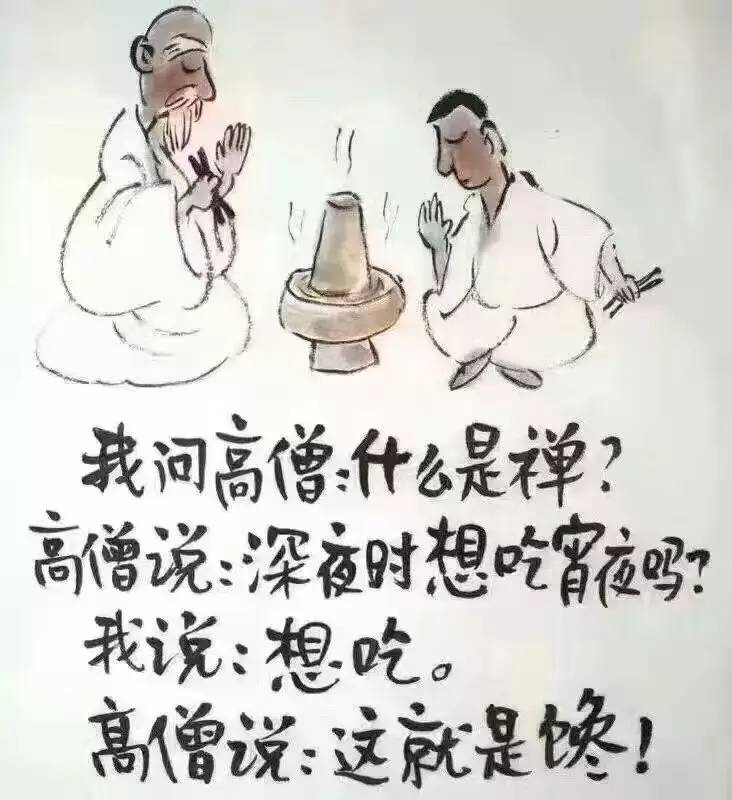 我问高僧:什么是禅?
高僧说:深夜时想吃宵夜吗?
我说:想吃。
高僧说:这就是馋!